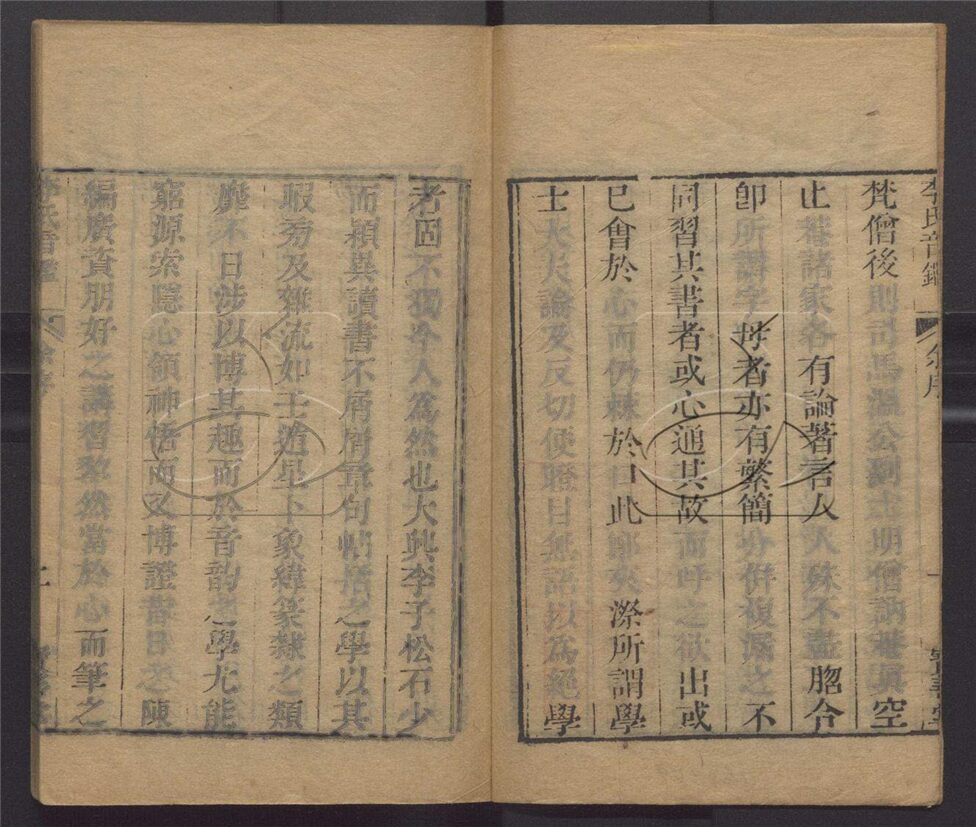 李氏音鑑 余序
梵僧後則司馬溫公劉士明僧訥菴真空
止菴諸家各有論著言人人殊不盡脗合
卽所謂字母者亦有繁簡分併複漏之不
同習其書者或心通其故而呼之欲出或
已會於心而仍棘於口此鄭夾漈所謂學
士大夫論及反切便瞪目無語以爲絕學
者固不獨今人爲然也大興李子松石少
而穎異讀書不屑屑章句帖括之學以其
暇旁及雜流如壬遁星卜象緯篆隸之類
靡不日涉以博其趣而於音韵之學尤能
窮源索隱心領神悟而又博證昔日之陳
編廣資朋好之講習犂然當於心而筆之
李氏音鑑 余序 二